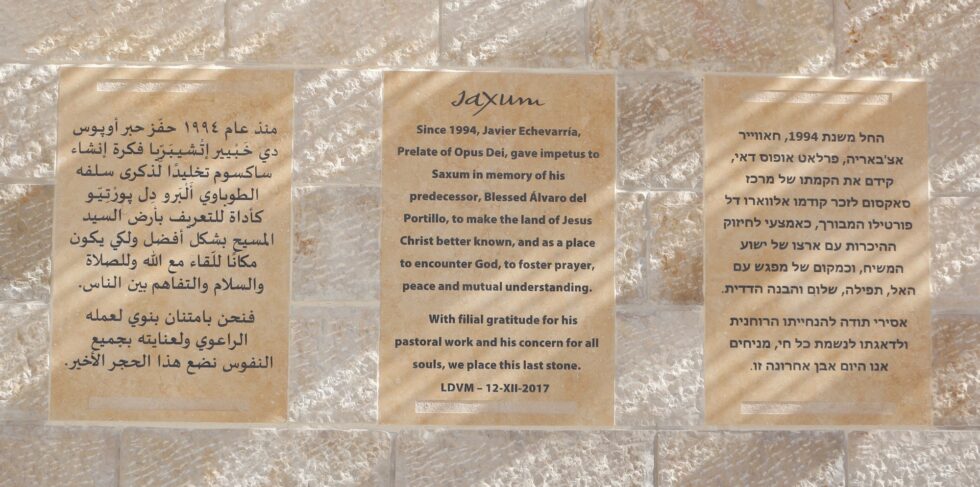 منذ عام ١٩٩٤ حفّز حبر أوپوس
دي خَبْيير إتْشيبَرّيا فكرة إنشاء
ساكسوم تخليدًا لذكرى سلفه
الطوباوي ألْبَرو دِل پورْتيّو
كأداة للتعريف بأرض السيد
المسيح بشكل أفضل ولكي يكون
مكانًا للّقاء مع الله وللصلاة
والسلام والتفاهم بين الناس.
فنحن بامتنان بنوي لعمله
الراعوي ولعنايته بجميع
النفوس نضع هذا الحجر الأخير.
saxum
Since 1994, Javier Echevarría,
Prelate of Opus Dei, gave impetus to
Saxum in memory of his
predecessor, Blessed Álvaro del
Portillo, to make the land of Jesus
Christ better known, and as a place
to encounter God, to foster prayer,
peace and mutual understanding.
With filial gratitude for his
pastoral work and his concern for all
souls, we place this last stone.
LDVM – 12-XII-2017
החל משנת 1994, חאווייר
אצ'באריה, פרלאט אופוס דאי,
קידם את הקמתו של מרכז
סאקסום לזכר קודמו אלווארו דל
פורטילו המבורך, כאמצעי לחיזוק
ההיכרות עם ארצו של ישוע
המשיח, וכמקום של מפגש עם
האל, תפילה, שלום והבנה הדדית.
אסירי תודה להנחייתו הרוחנית
ולדאגתו לנשמת כל חי, מניחים
אנו היום אבן אחרונה זו.